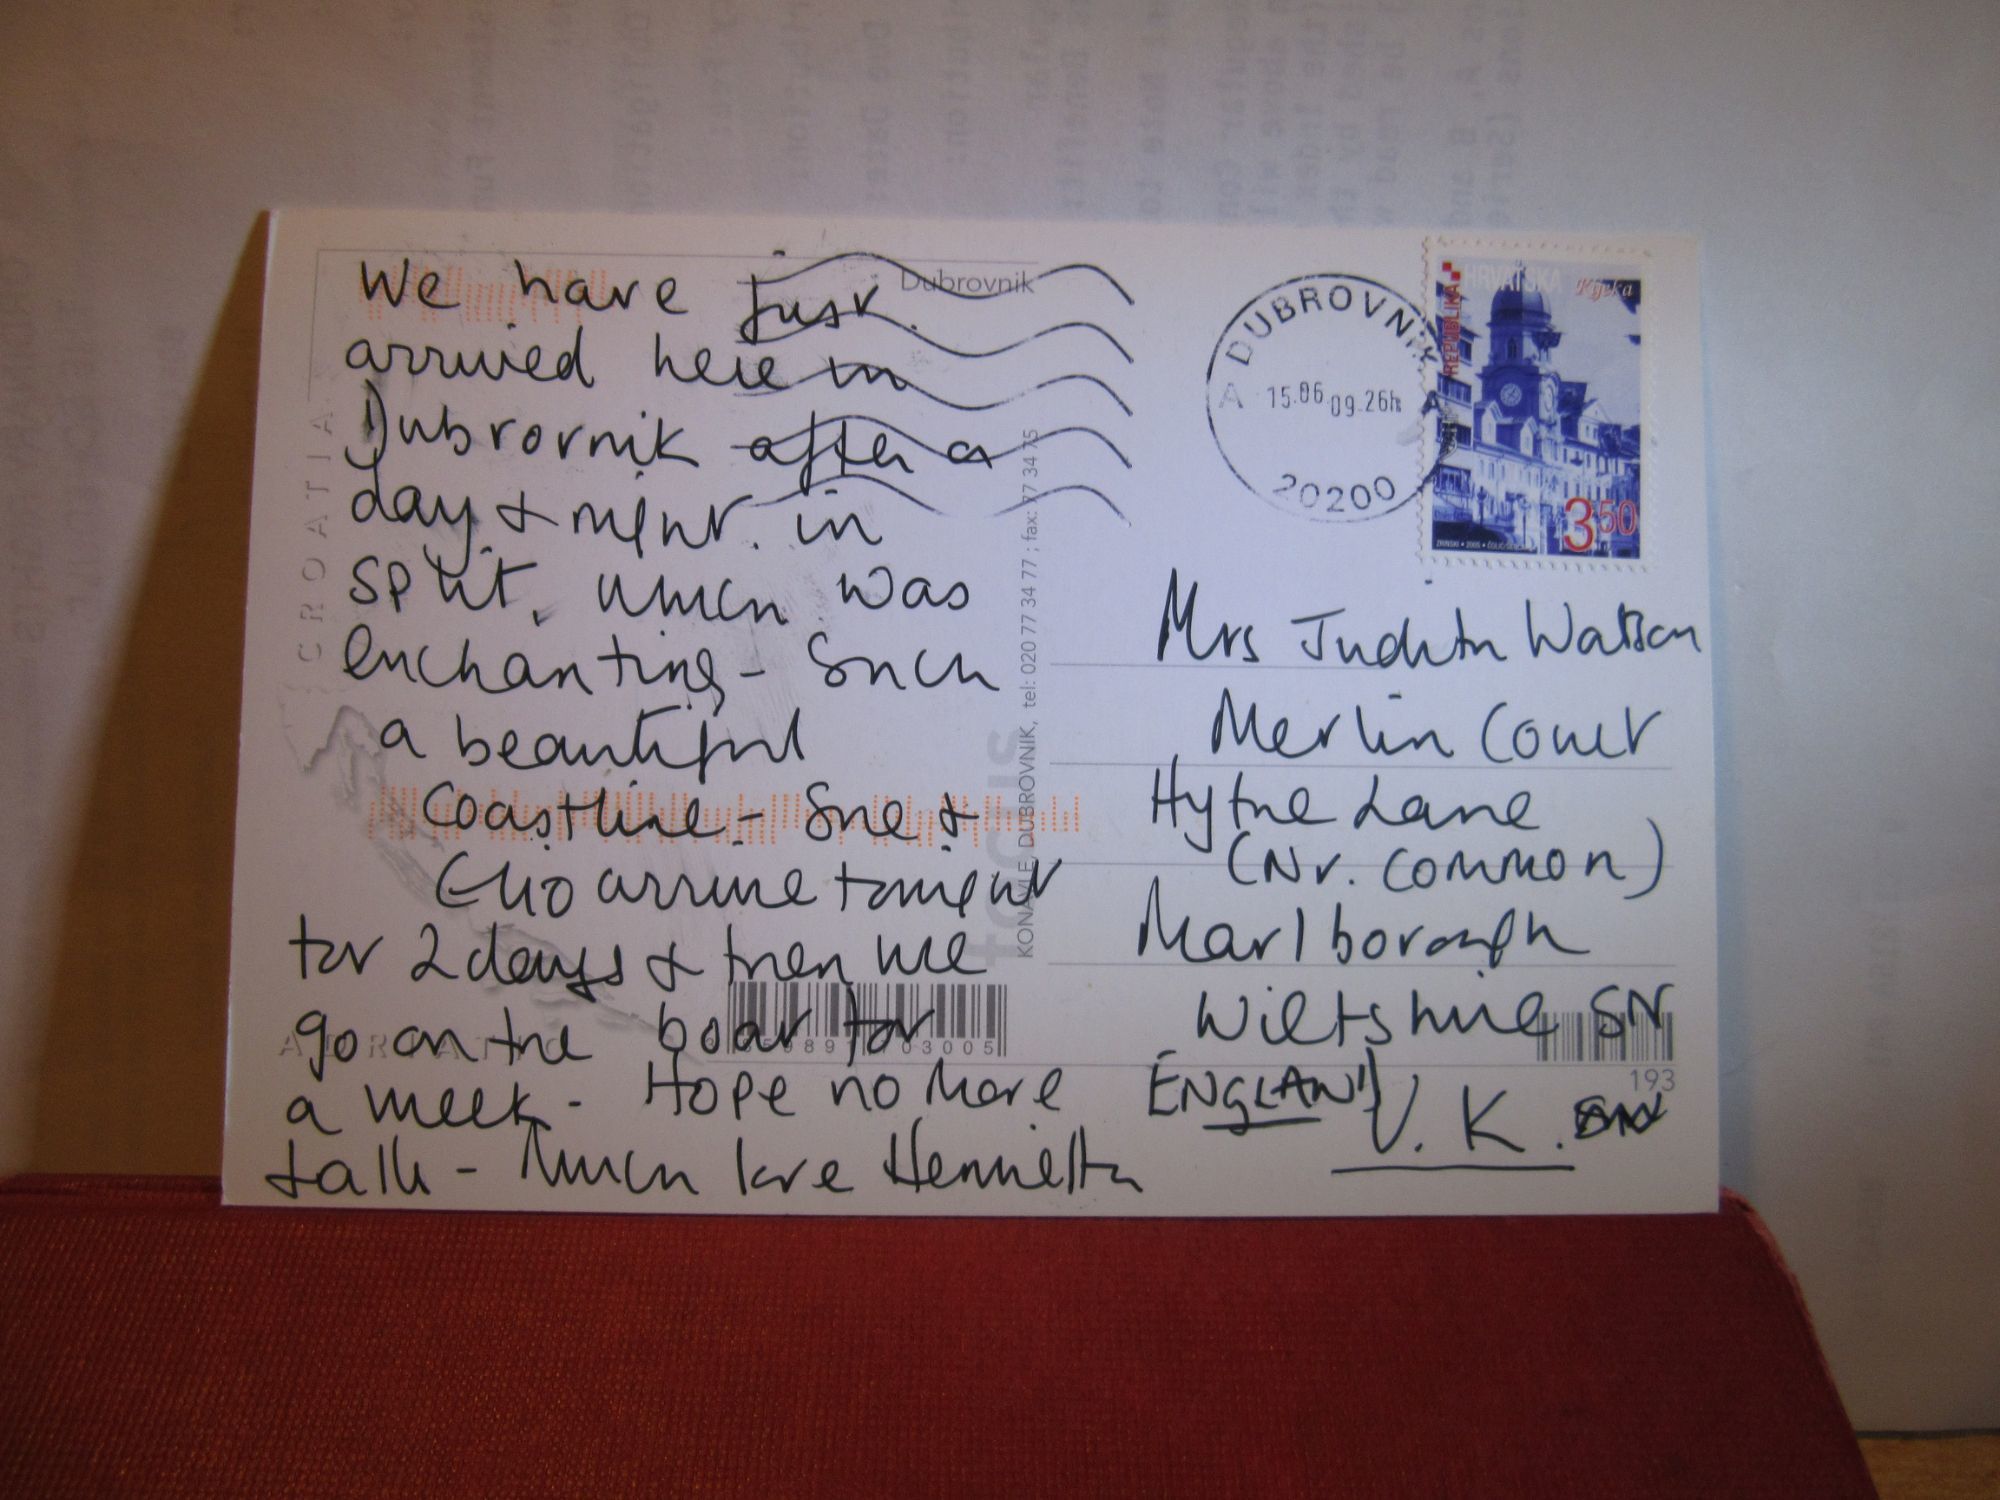 We have just
arrived here in
Dubrovnik after a
day & night in
Split, which was
enchanting - Such
a beautiful
Coastline - Sue &
arrive tonight
for 2 days & then we
go on the boat for
a week - Hope no more
falls - Much love Henrietta
Dubrovnik
CROATIA
ADRIATIC
KONAVLE, DUBROVNIK, tel: 020 77 34 77 ; fax: 77 34 75
703005
DUBROVNIK
A 15.06.09.26h A
20200
REPUBLIKA HRVATSKA
Rijeka
3.50
Mrs Judith Watson
Merlin Court
Hythe Lane
(Nr. Common)
Marlborough
Wiltshire SN
ENGLAND
U.K.
193